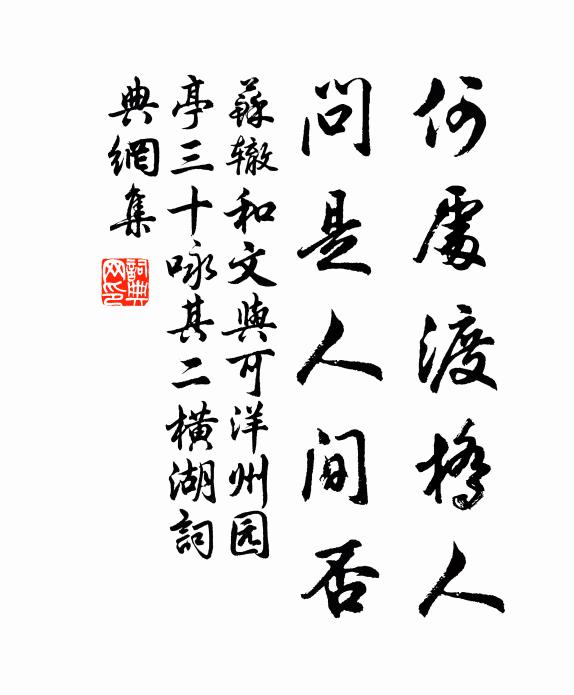 何處渡橋人
問是人間否
蘇辙和文與可洋州园
亭三十咏其二橫湖詞
典網集
詞典
网印